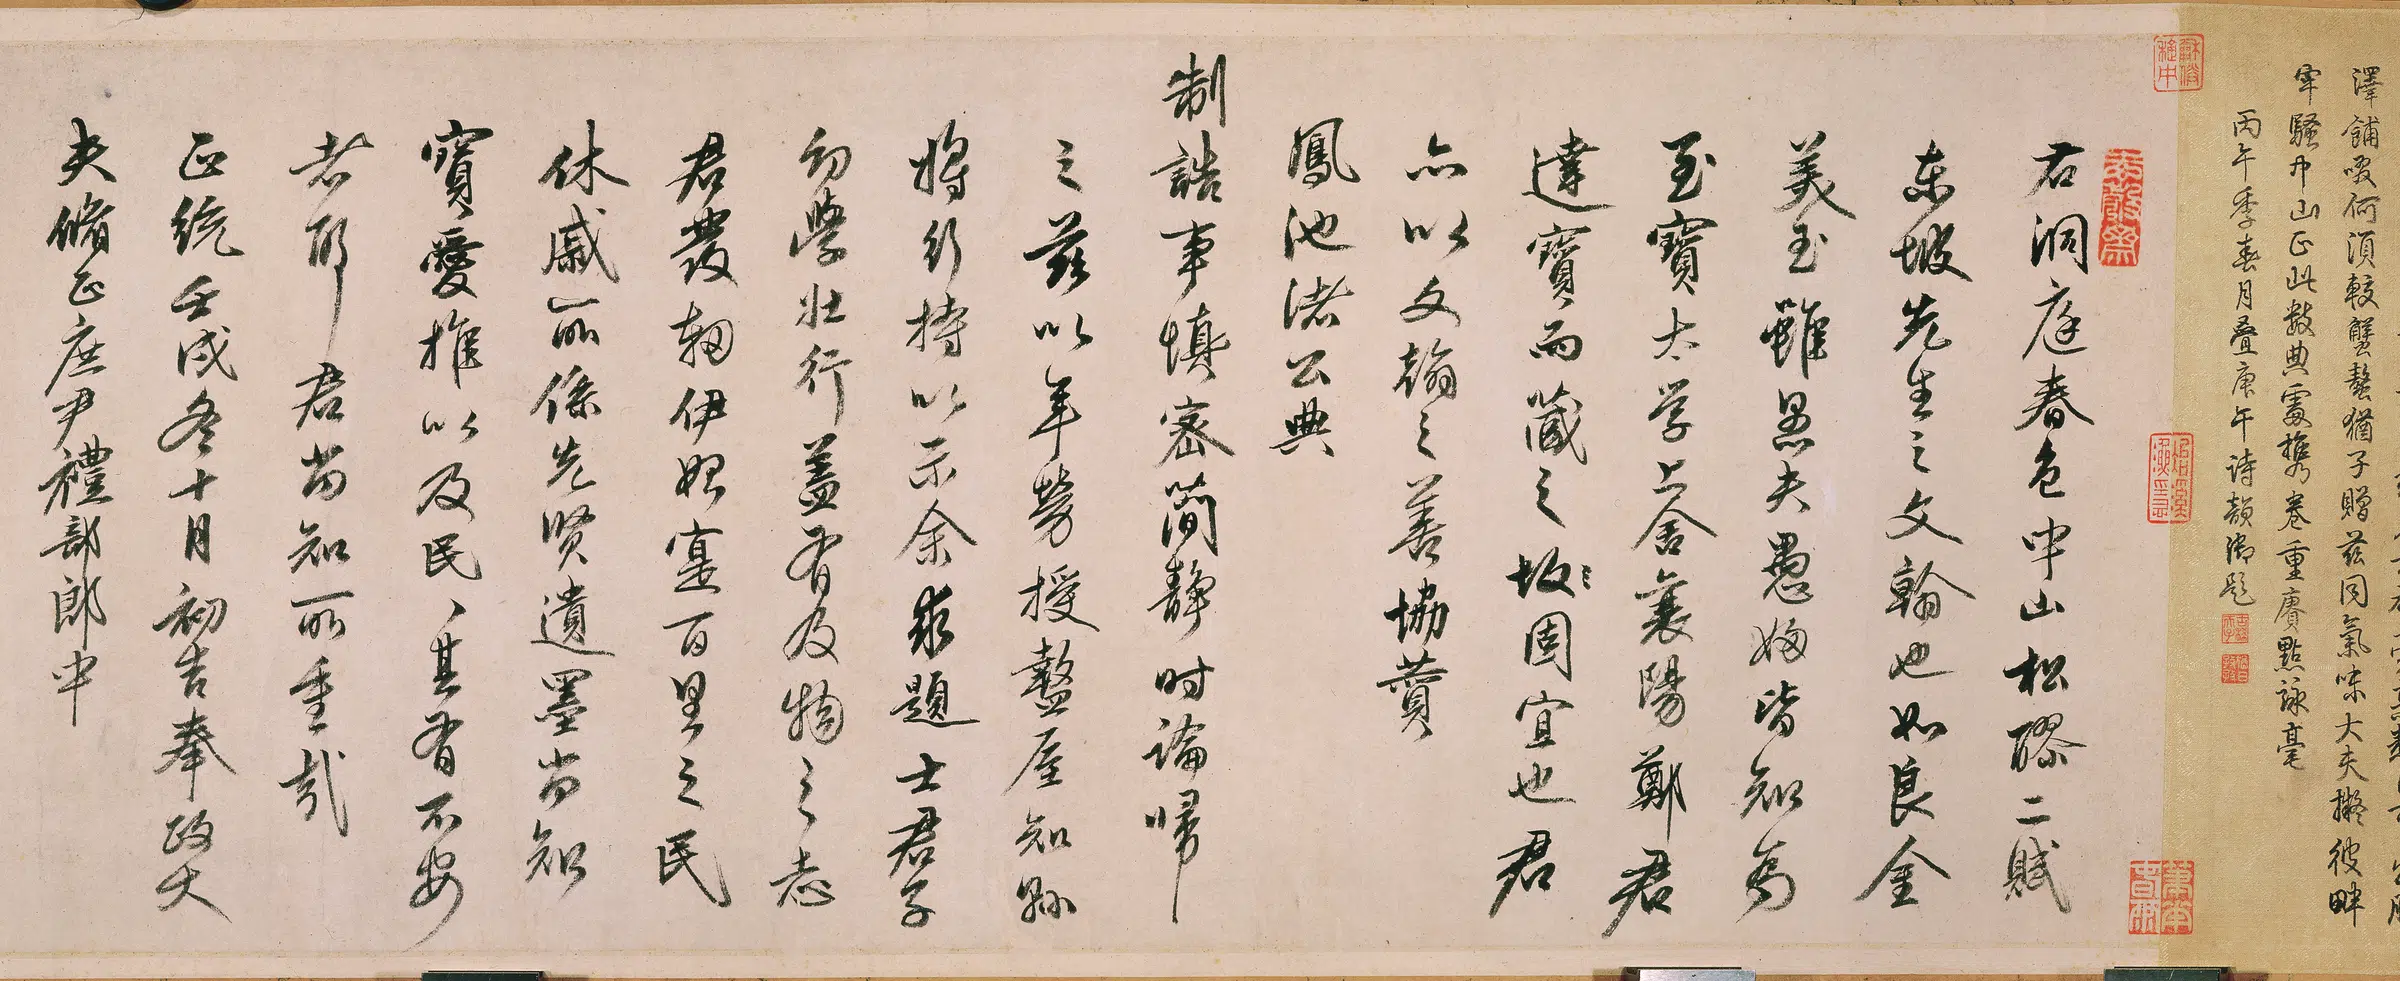 澤餔啜何須較蟹螯猶子贈茲同氣味大夫擬彼畔
牢騷中山正此數典處攜卷重賡點詠毫
丙午季春月疊庚午詩韻御題
右洞庭春色中山松醪二賦
東坡先生之文翰也如良金
美玉雖愚夫愚婦皆知為
至寶太學上舍襄陽鄭君
達寶而藏之故固宜也君
亦以文翰之善協贊
鳳池諸公典
制誥事慎密簡靜時論歸
之茲以年勞授盩厔知縣
將行持以示余求題士君子
幼學壯行蓋有及物之志
君發軔伊始寔百里之民
休戚所係先賢遺墨尚知
寶愛推以及民民其有不安
者耶君尚知所重哉
正統壬戌冬十月初吉奉政大
夫脩正庶尹禮部郎中